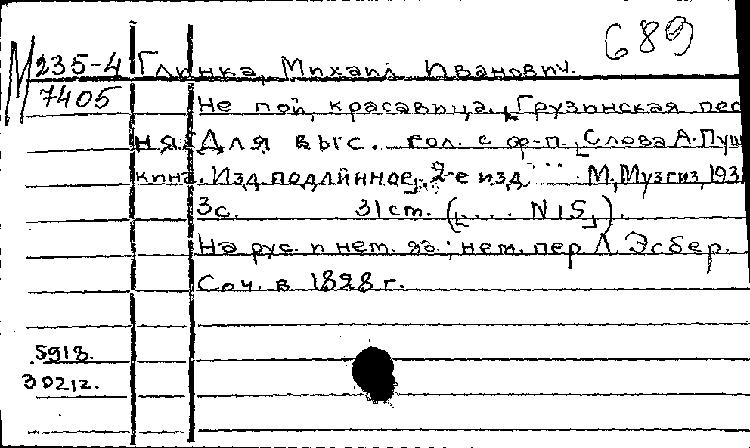 689
М 235-4 Глинка, Михаил Иванович.
7405
Не пой, красавица. [Грузинская пес
ня] Для выс. гол. с ф-п. [Слова А. Пуш
кина. Изд. подлинное], 2-е изд ... М, Музгиз, 193
3с. 31 ст. ([.... N 15]).
На рус. и нем. яз.; нем. пер Л. Эсбер.
Соч. в 1828 г.
5918.
3021г.